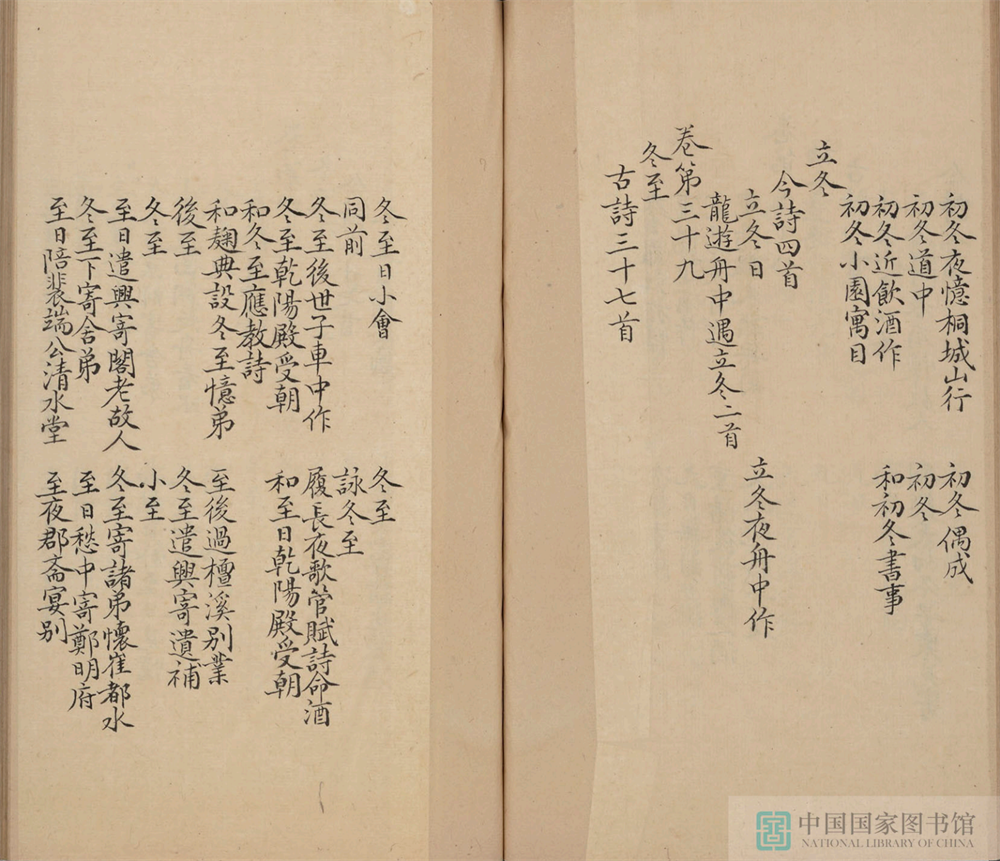 初冬夜憶桐城山行 初冬偶成
初冬道中 初冬
初冬近飲酒作 和初冬書事
初冬小園寓目
立冬
今詩四首
立冬日 立冬夜舟中作
龍遊舟中遇立冬二首
卷第三十九
冬至
古詩三十七首
冬至日小會 冬至
同前 詠冬至
冬至後世子車中作 履長夜歌管賦詩命酒
冬至乾陽殿受朝 和至日乾陽殿受朝
和冬至應教詩
和麹典設冬至憶弟 至後過檀溪别業
後至 冬至遣興寄遺補
冬至 小至
至日遣興寄閣老故人 冬至寄諸弟懷崔都水
冬至下寄舍弟 至日愁中寄鄭明府
至日陪裴端公清水堂 至夜郡斋宴别
中国国家图书馆
NATIONAL LIBRARY OF CHINA